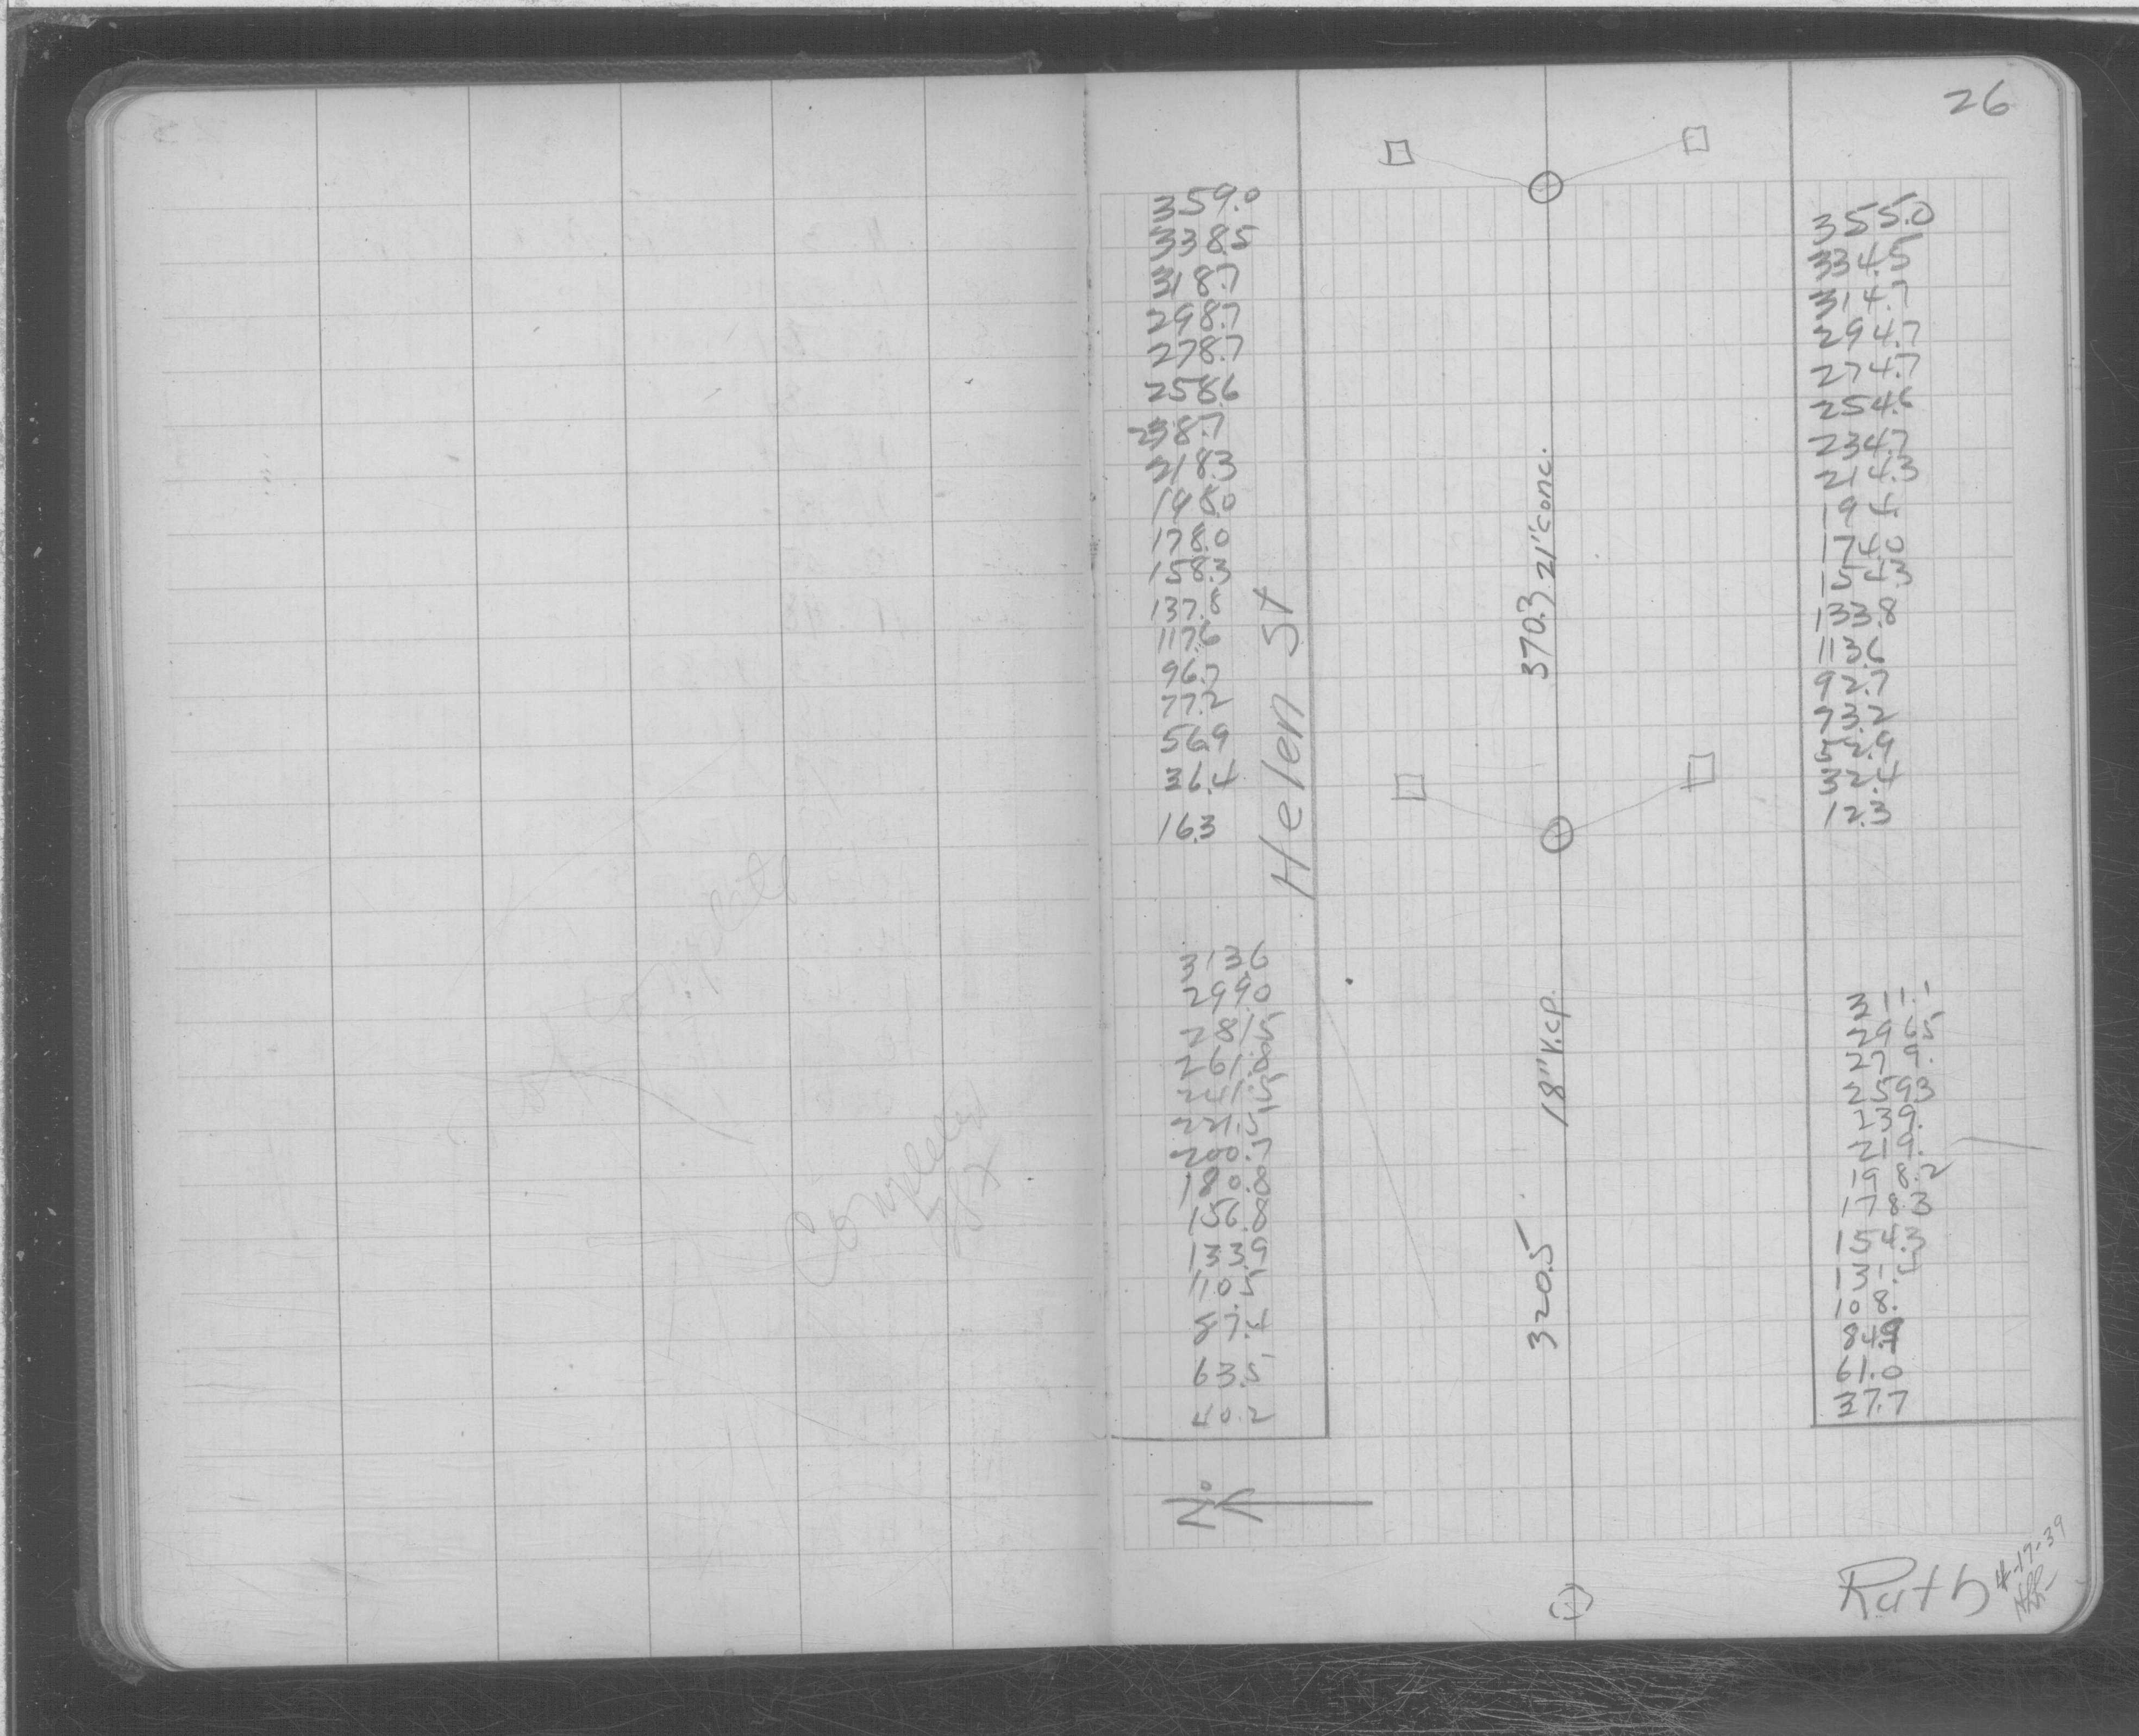 26
359.0
338.5
318.7
298.7
278.7
258.6
238.7
218.3
198.0
178.0
158.3
137.8
117.6
96.7
77.2
56.9
36.4
16.3
Helen St
313.6
299.0
281.5
261.8
241.5
221.5
200.7
180.8
156.8
133.9
110.5
87.4
63.5
40.2
370.3 21" conc.
320.5 18" V.C.P.
355.0
334.5
314.7
294.7
274.7
254.6
234.7
214.3
194.
174.0
154.3
133.8
113.6
92.7
73.2
52.9
32.4
12.3
311.1
296.5
279.
259.3
239.
219.
198.2
178.3
154.3
131.5
108.
84.9
61.0
37.7
Complete
Completed
N
Ruth
4-17-39